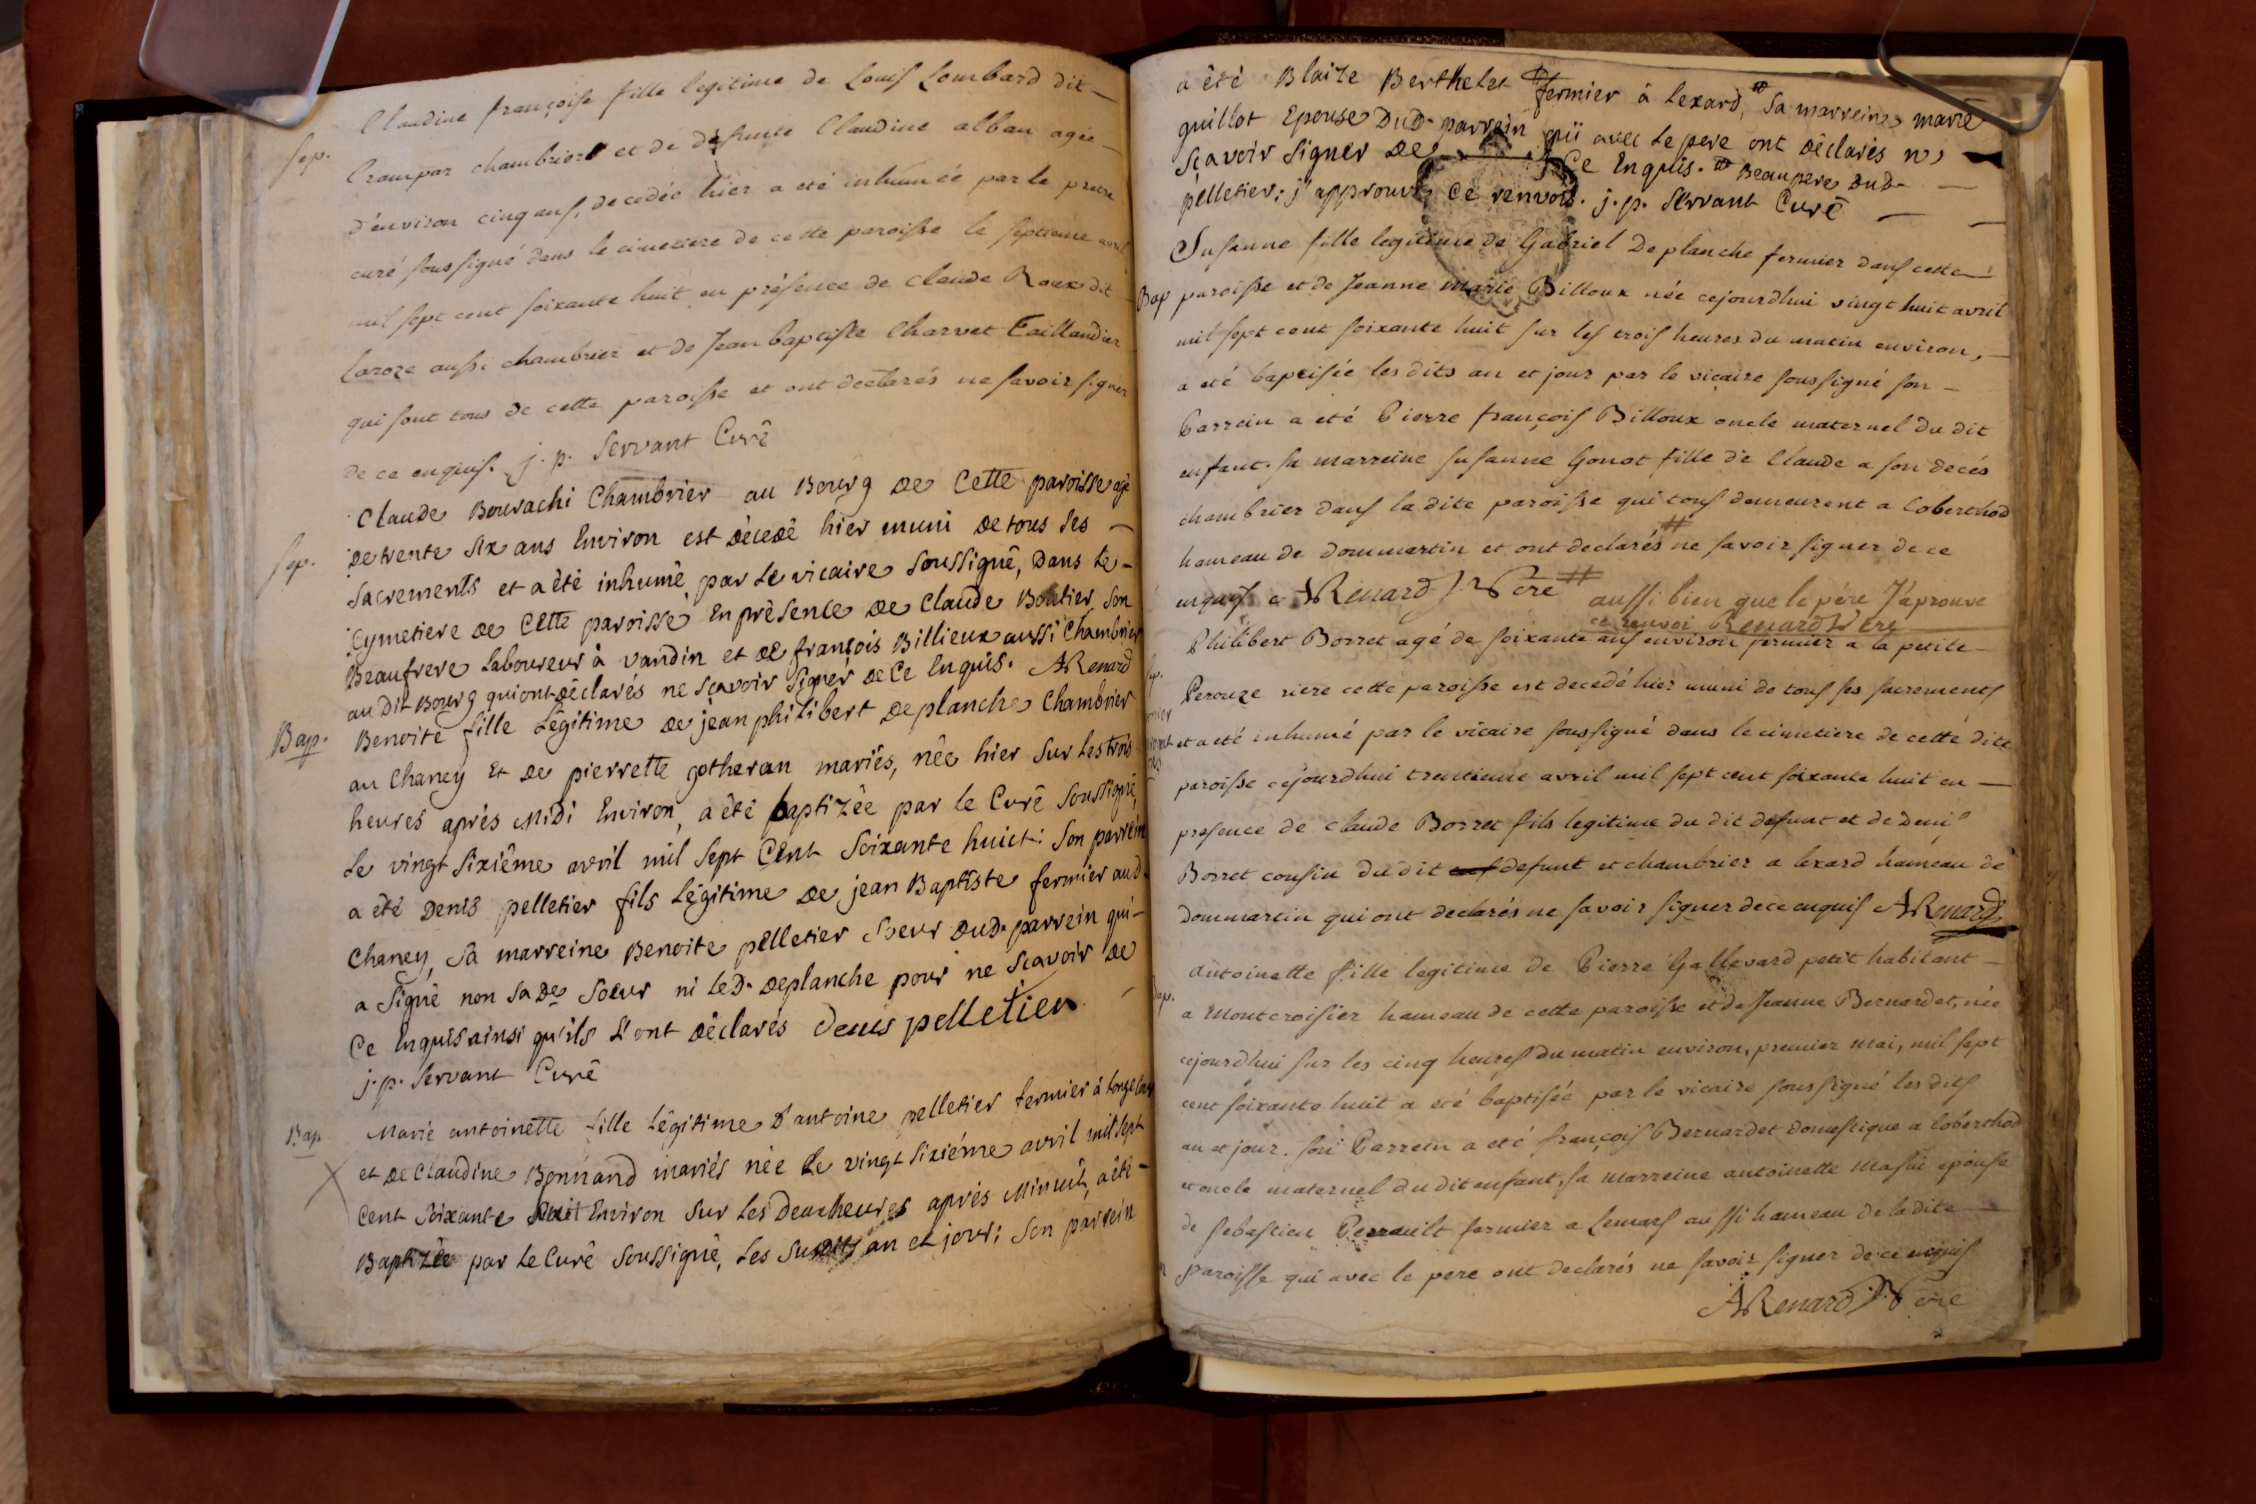 Sep.
Claudine françoise fille legitime de Louis Lombard dit
Crampar chambrier et de defunte Claudine alban agée
d'environ cinq ans, decedée hier a eté inhumée par le pretre
curé soussigné dans le cimetiere de cette paroisse le septieme avril
mil sept cent soixante huit en présence de claude Roux dit
Laroze aussi chambrier et de Jean baptiste Charvet Taillandier
qui sont tous de cette paroisse et ont declarés ne savoir signer
de ce enquis. j. p. Servant Curé
Sep.
Claude Bourachi Chambrier au Bourg de Cette paroisse agé
de trente six ans Environ est décedé hier muni de tous ses
Sacrements et a été inhumé par le vicaire Soussigné, Dans le
Cymetiere de Cette paroisse En présence de Claude Boutier, Son
Beaufrere laboureur à vandin et de françois Billieux aussi Chambrier
au dit Bourg qui ont déclarés ne sçavoir signer de Ce Enquis. A Renard
Bap.
Benoite fille Légitime de jean philibert Deplanche Chambrier
au Chaney Et de pierrette gotheran mariés, née hier Sur les trois
heures après Midi Environ, a été baptizée par le Curé Soussigné,
Le vingt sixiéme avril mil sept Cent Soixante huict: Son parrein
a été Denis pelletier fils Légitime de jean Baptiste fermier aud.
Chaney, Sa marreine Benoite pelletier Soeur dud. parrein qui
a Signé non sa de Soeur ni led. Deplanche pour ne sçavoir de
Ce Enquis ainsi qu'ils l'ont déclarés Denis pelletier
j. p. Servant Curé
Bap
Marie antoinette fille Légitime d'antoine pelletier fermier à
et de Claudine Bonnand mariés née Le vingt sixiéme avril mil sept
Cent Soixante huit Environ Sur les deux heures après Minuit, a été
Baptizée par le Curé Soussigné, les susdits an et jour; Son parrein
a été Blaize Berthelet fermier à Lexard, Sa marreine marie
guillot Epouse dud. parrein qui avec le pere ont déclarés ne
sçavoir signer de Ce Enquis. Beaupere dud.
pelletier; j'approuve Ce renvois. j. p. Servant Curé
Bap
Susanne fille legitime de Gabriel Deplanche fermier dans cette
paroisse et de Jeanne Marie Billoux née cejourdhui vingt huit avril
mil sept cent soixante huit sur les trois heures du matin environ,
a eté baptisée les dits an et jour par le vicaire soussigné son
Parrein a eté Pierre françois Billoux oncle maternel du dit
enfant. Sa marreine Susanne Gonot fille de Claude a son decés
chambrier dans la dite paroisse qui tous demeurent a Coberthod
hameau de dommartin et ont declarés # ne savoir signer de ce
enquis A Renard Vere # aussi bien que le pére J'aprouve
ce renvoi Renard Vere
Philibert Borret agé de soixante ans environ fermier a la petite
Perouze riere cette paroisse est decedé hier muni de tous ses sacrements
et a eté inhumé par le vicaire soussigné dans le cimetiere de cette dite
paroisse cejourdhui trentieme avril mil sept cent soixante huit en
presence de Claude Borret fils legitime du dit defunt et de Denis
Borret cousin du dit defunt et chambrier a lexard hameau de
dommartin qui ont declarés ne savoir signer de ce enquis A Renard
Bap.
Antoinette fille legitime de Pierre Gallevard petit habitant
a Montcroisier hameau de cette paroisse et de Jeanne Bernardet, née
cejourdhui sur les cinq heures du matin environ, premier mai, mil sept
cent soixante huit a eté baptisée par le vicaire soussigné les dits
an et jour. Son Parrein a eté françois Bernardet domestique a Coberthod
et oncle maternel du dit enfant, sa marreine antoinette epouse
de sebastien Perrault fermier a Lemars aussi hameau de la dite
paroisse qui avec le pere ont declarés ne savoir signer de ce enquis
A Renard Vere